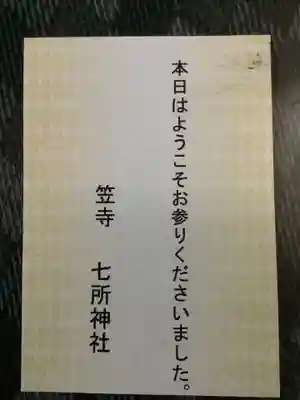 本日はようこそお参りくださいました。
笠寺　七所神社